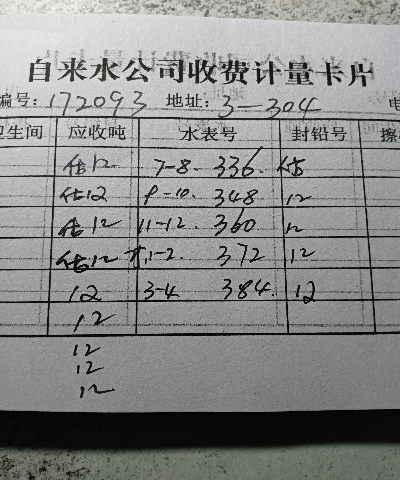 自来水公司收费计量卡片
编号: 172093 地址: 3-304 电
卫生间 应收吨 水表号 封铅号
估12 7-8. 336. 估
估12 9-10. 348 12
估12 11-12. 360 12
估12 1-2. 372 12
12 3-4 384. 12
12
12
12
12